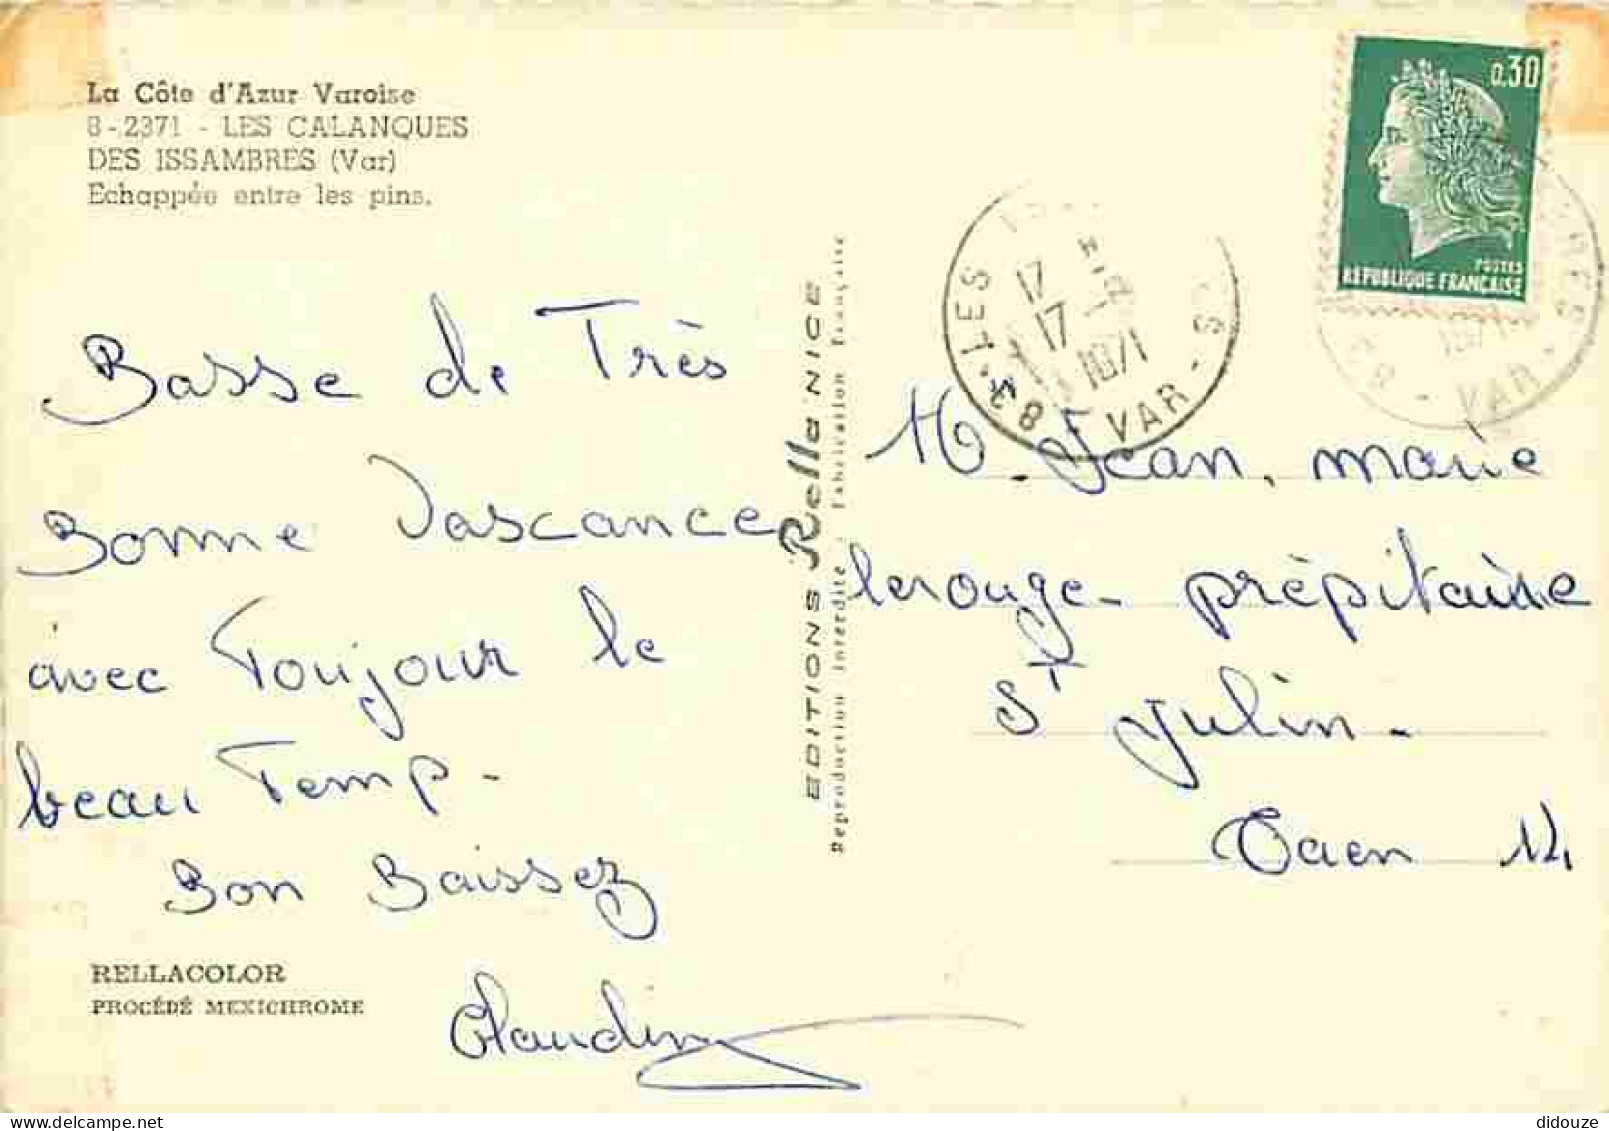 La Côte d'Azur Varoise
8-2371 - LES CALANQUES
DES ISSAMBRES (Var)
Echappée entre les pins.
Basse de Très
Bonne Vascance
avec Toujour le
beau Temp -
Bon Baissez
Claudin
RELLACOLOR
PROCÉDÉ MEXICHROME
EDITIONS Rella NICE
Reproduction Interdite - Fabrication Française
0.30
POSTES
REPUBLIQUE FRANÇAISE
LES
17
17
1971
83 - VAR
1971
VAR
M. Jean, marie
lerouge - prépitaine
St Julin -
Caen 14
didouze